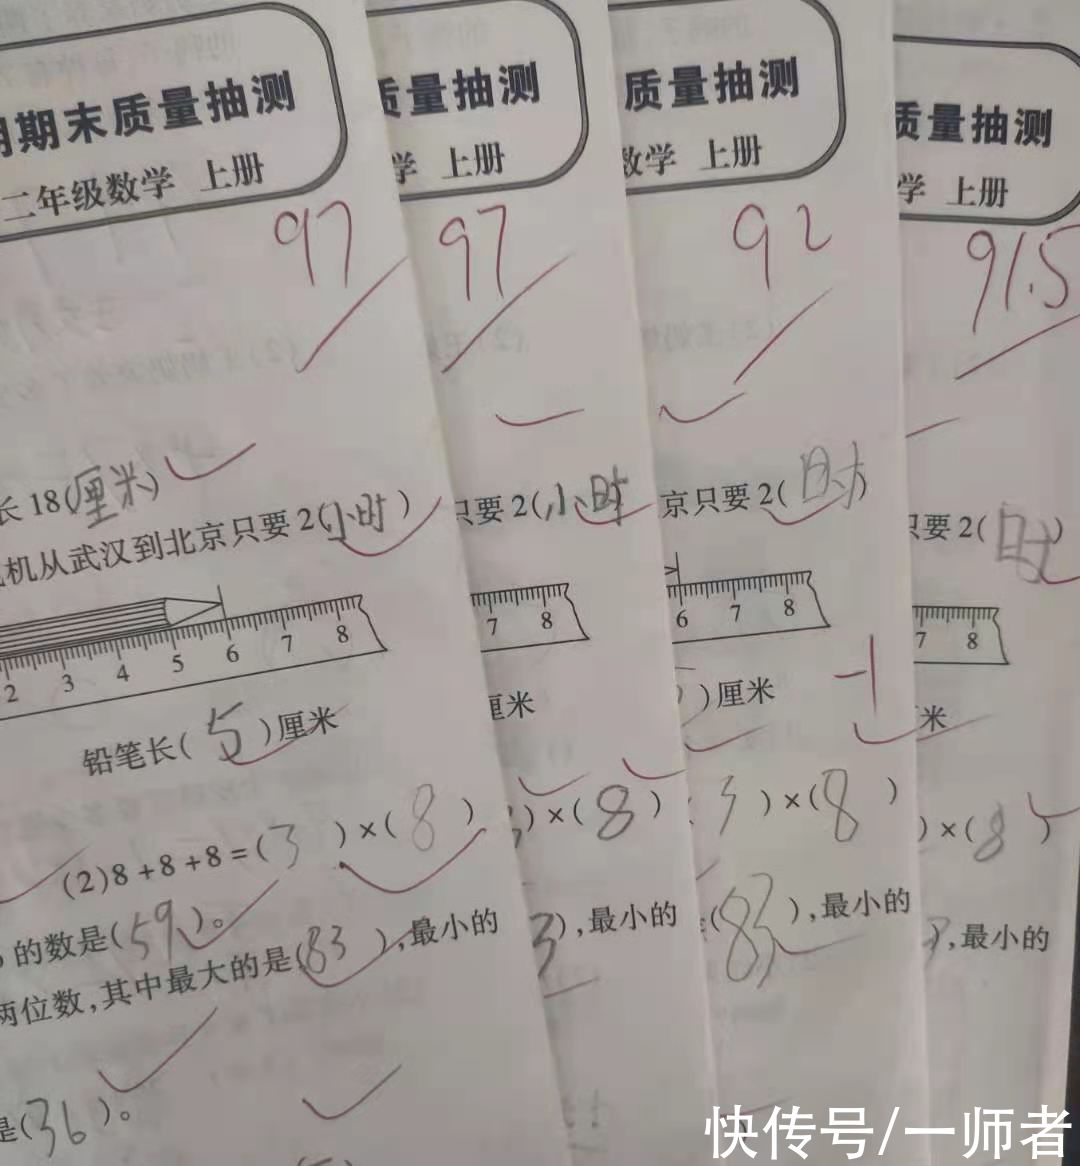 期末质量抽测
二年级数学 上册
97
长18(厘米)
机从武汉到北京只要2(小时)
2 3 4 5 6 7 8
铅笔长(5)厘米
(2)8+8+8=(3)×(8)
的数是(59)。
两位数,其中最大的是(83),最小的
是(36)。
质量抽测
学 上册
97
只要2(小时
7 8
厘米
)×(8)
3),最小的
质量抽测
数学 上册
92
京只要2(时)
6 7 8
)厘米
-1
(3)×(8)
(83),最小的
质量抽测
学 上册
91.5
只要2(时)
7 8
米
)×(8)
,最小的
快传号/一师者